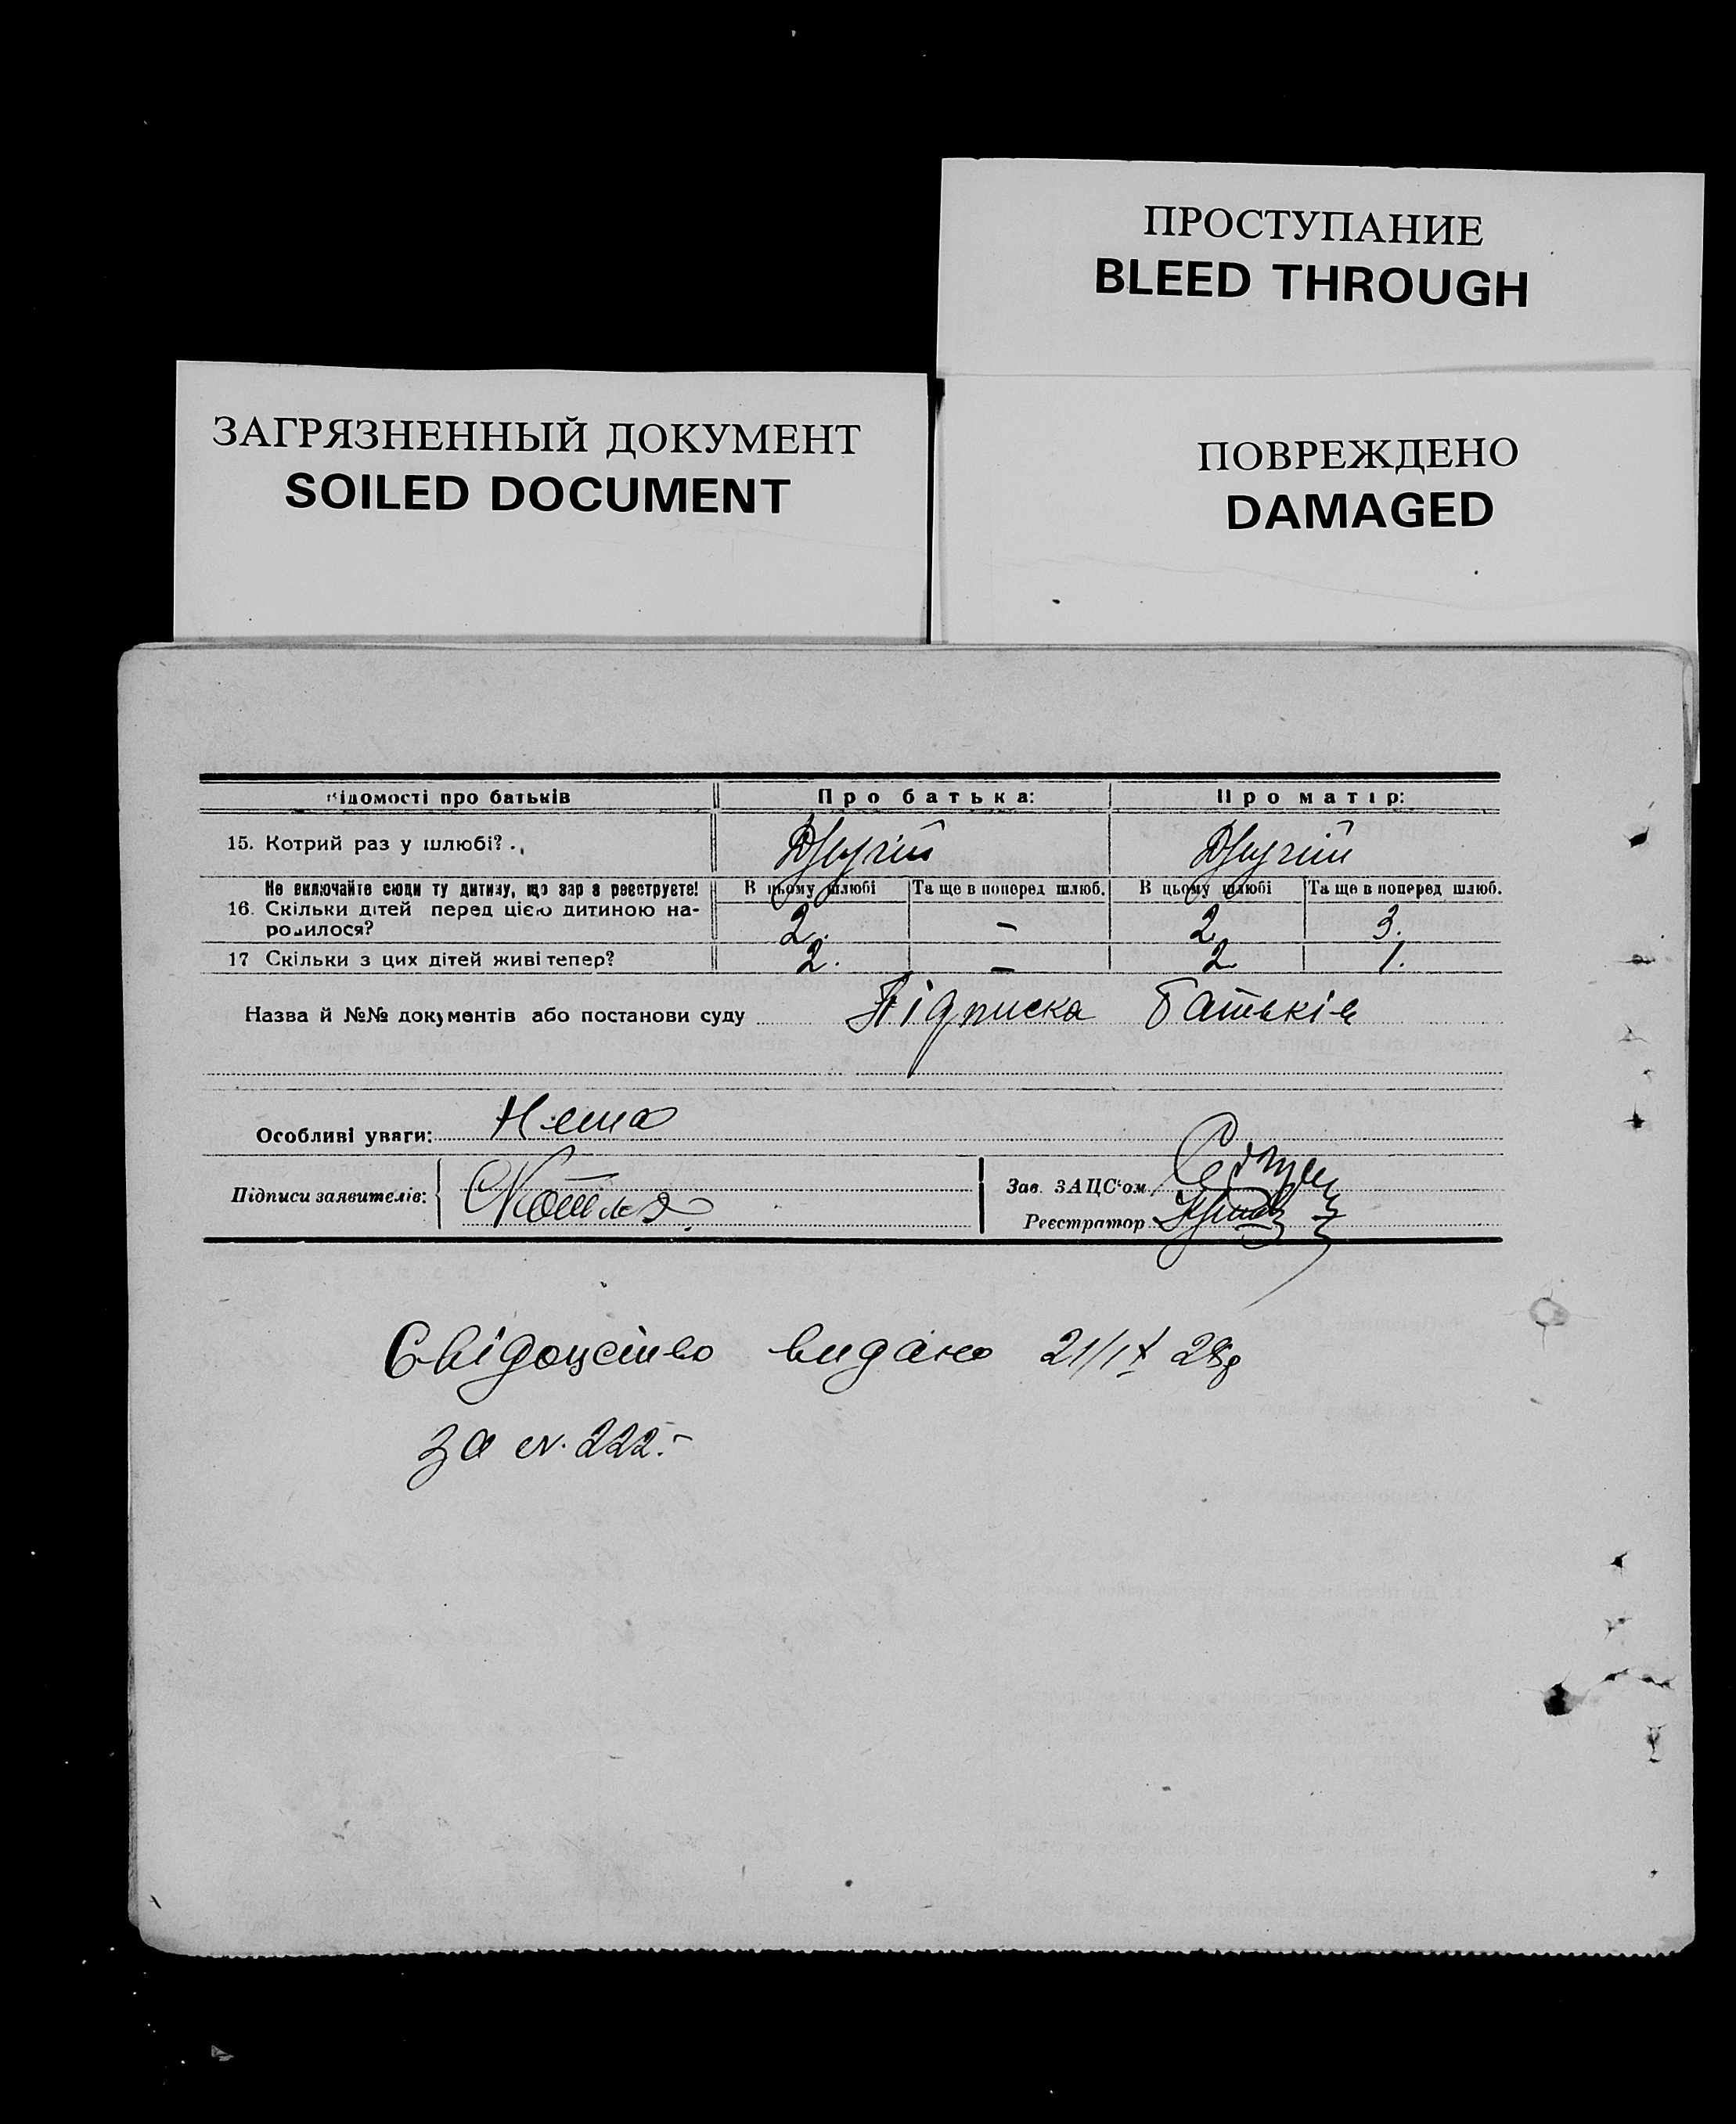 ПРОСТУПАНИЕ
BLEED THROUGH
ЗАГРЯЗНЕННЫЙ ДОКУМЕНТ
SOILED DOCUMENT
ПОВРЕЖДЕНО
DAMAGED
Відомості про батьків Про батька: Про матір:
15. Котрий раз у шлюбі? Другий Другий
Не включайте сюди ту дитину, що зараз реєструєте! В цьому шлюбі Та ще в поперед шлюб. В цьому шлюбі Та ще в поперед шлюб.
16. Скільки дітей перед цією дитиною на-
родилося? 2. – 2 3.
17 Скільки з цих дітей живі тепер? 2. – 2 1.
Назва й №№ документів або постанови суду Підписка батьків
Особливі уваги: Нема
Підписи заявителів:
Зав. ЗАЦС'ом
Реєстратор
Свідоцтво видано 21/IX 28р
за N. 222.-